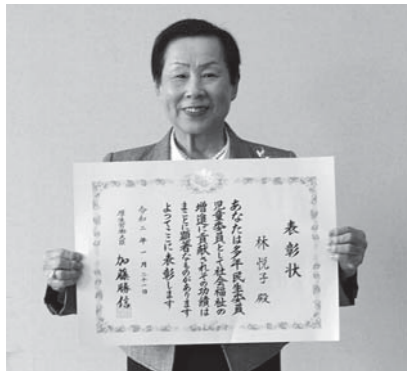 表彰状
林 悦子 殿
あなたは多年民生委員
児童委員として社会福祉の
増進に貢献されその功績は
まことに顕著なものがあります
よってここに表彰します
令和二年一月二十一日
厚生労働大臣 加藤勝信